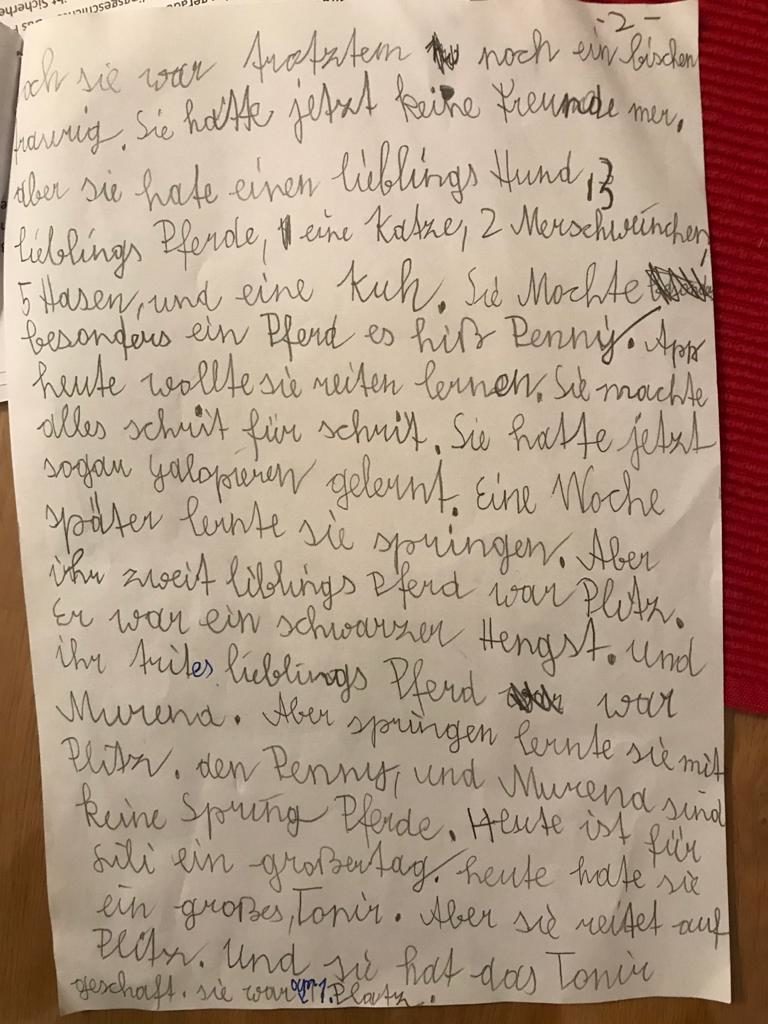 -2-
och sie war trotztem noch ein bischen
traurig. Sie hatte jetzt keine Freunde mer.
aber sie hate einen lieblings Hund, 3
lieblings Pferde, eine Katze, 2 Merschweinchen,
5 Hasen, und eine Kuh. Sie Mochte
besonders ein Pferd es hiß Penny. App
heute wollte sie reiten lernen. Sie machte
alles schrit für schrit. Sie hatte jetzt
sogar galopieren gelernt. Eine Woche
später lernte sie springen. Aber
ihr zweit liblings Pferd war Plitz.
Er war ein schwarzer Hengst. und
ihr trites lieblings Pferd war
Murena. Aber springen lernte sie mit
Plitz. den Penny, und Murena sind
keine Spring Pferde. Heute ist für
Lili ein großertag. heute hate sie
ein großes, Tonir. Aber sie reitet auf
Plitz. Und sie hat das Tonir
geschaft. sie war am 1. Platz.